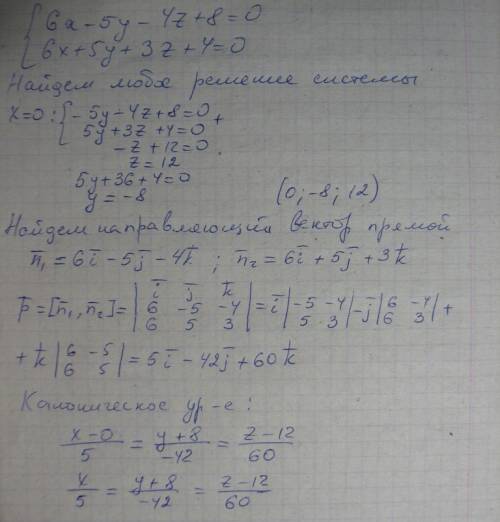 { 6x - 5y - 4z + 8 = 0
6x + 5y + 3z + 4 = 0
Найдем любое решение системы
x=0: { -5y - 4z + 8 = 0
5y + 3z + 4 = 0 +
-z + 12 = 0
z = 12
5y + 36 + 4 = 0
y = -8 (0; -8; 12)
Найдем направляющий вектор прямой
n̅₁ = 6i̅ - 5j̅ - 4k̅ ; n̅₂ = 6i̅ + 5j̅ + 3k̅
p̅ = [n̅₁, n̅₂] = | i̅ j̅ k̅ ; 6 -5 -4 ; 6 5 3 | = i̅ | -5 -4 ; 5 3 | - j̅ | 6 -4 ; 6 3 | +
+ k̅ | 6 -5 ; 6 5 | = 5i̅ - 42j̅ + 60k̅
Каноническое ур-е:
(x-0)/5 = (y+8)/-42 = (z-12)/60
x/5 = (y+8)/-42 = (z-12)/60